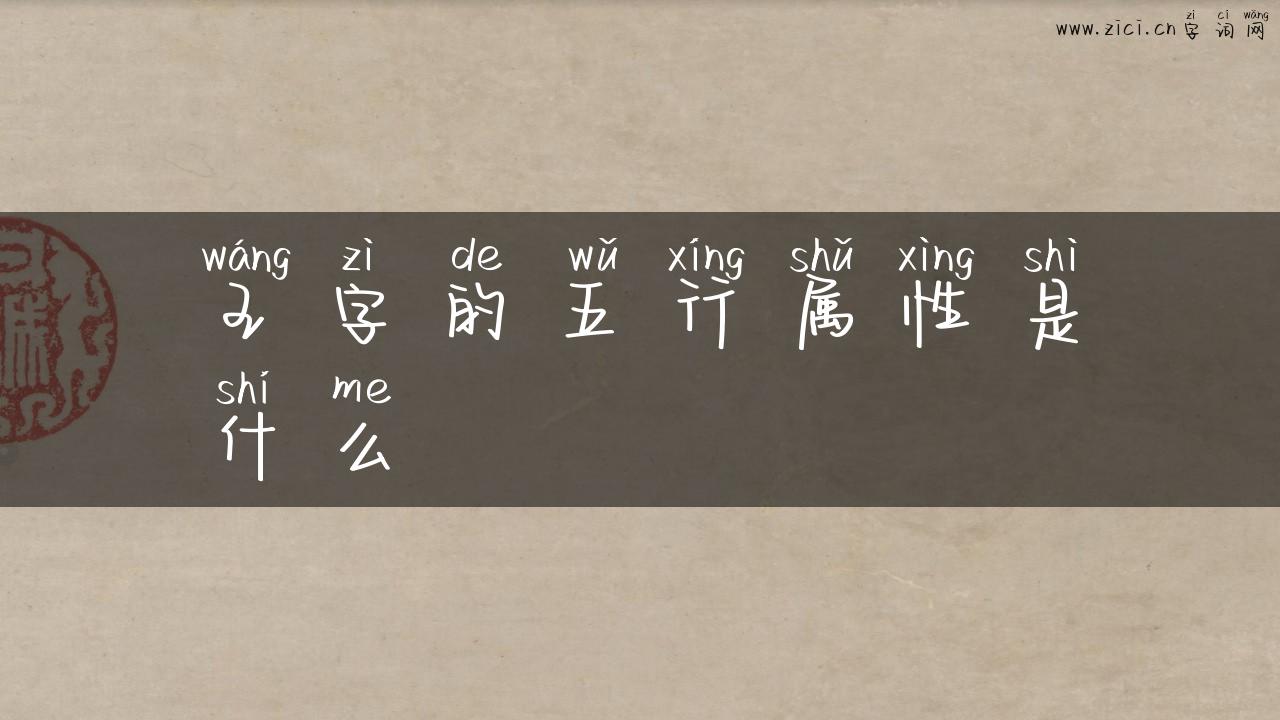 www.zici.cn zì cí wǎng
字词网
wáng zì de wǔ xíng shǔ xìng shì
王字的五行属性是
shí me
什么